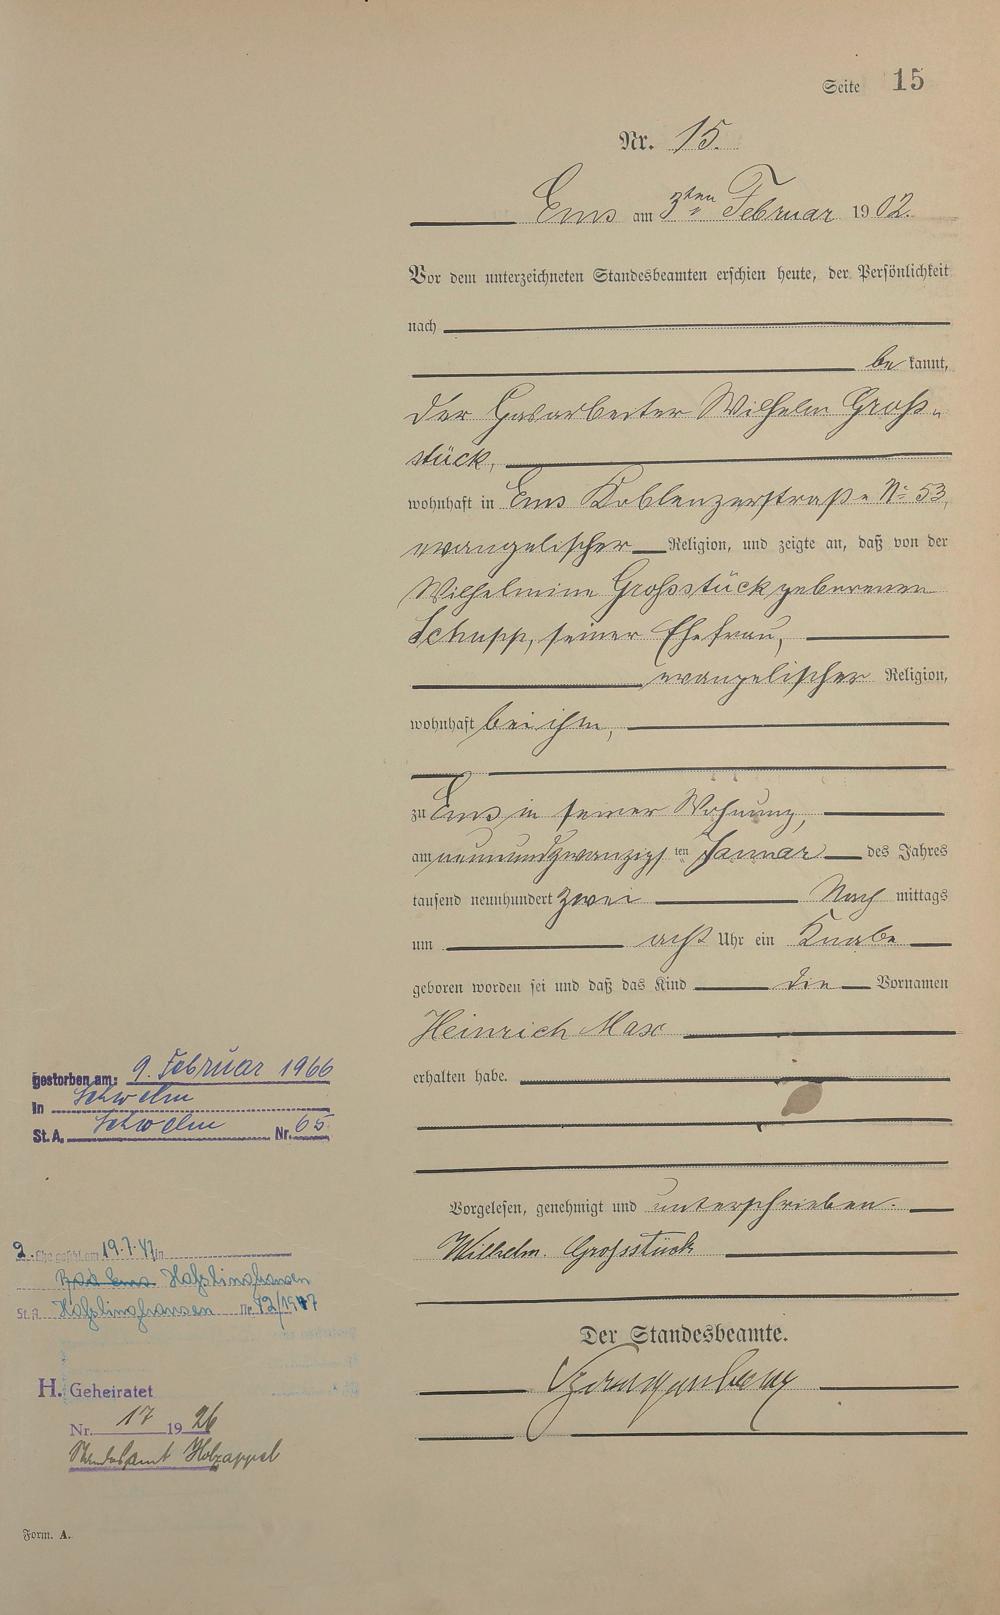 Seite 15
Nr. 15.
Ems am 3ten Februar 1902.
Vor dem unterzeichneten Standesbeamten erschien heute, der Persönlichkeit
nach
be kannt,
der Gasarbeiter Wilhelm Groß-
stück,
wohnhaft in Ems Koblenzerstraße No 53,
evangelischer Religion, und zeigte an, daß von der
Wilhelmine Großstück geborenen
Schupp, seiner Ehefrau,
evangelischer Religion,
wohnhaft bei ihm,
zu Ems in seiner Wohnung,
am neunundzwanzigsten Januar des Jahres
tausend neunhundert zwei Nach mittags
um acht Uhr ein Knabe
geboren worden sei und daß das Kind die Vornamen
Heinrich Max
erhalten habe.
Vorgelesen, genehmigt und unterschrieben.
Wilhelm Großstück
Der Standesbeamte.
gestorben am: 9. Februar 1966
In Schwelm
St. A. Schwelm Nr. 65
2. Ehe geschl. am 19.7.47 in
Bad Ems Haßlinghausen
St. A. Haßlinghausen Nr. 42/1947
H. Geheiratet
Nr. 17 1926
Standesamt Holzappel
Form. A.